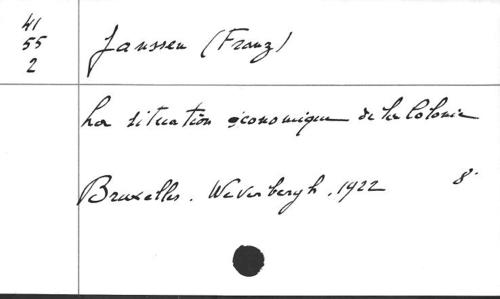 41
55
2
Janssen (Franz)
La situation économique de la Colonie
Bruxelles. Weverbergh. 1922 8°